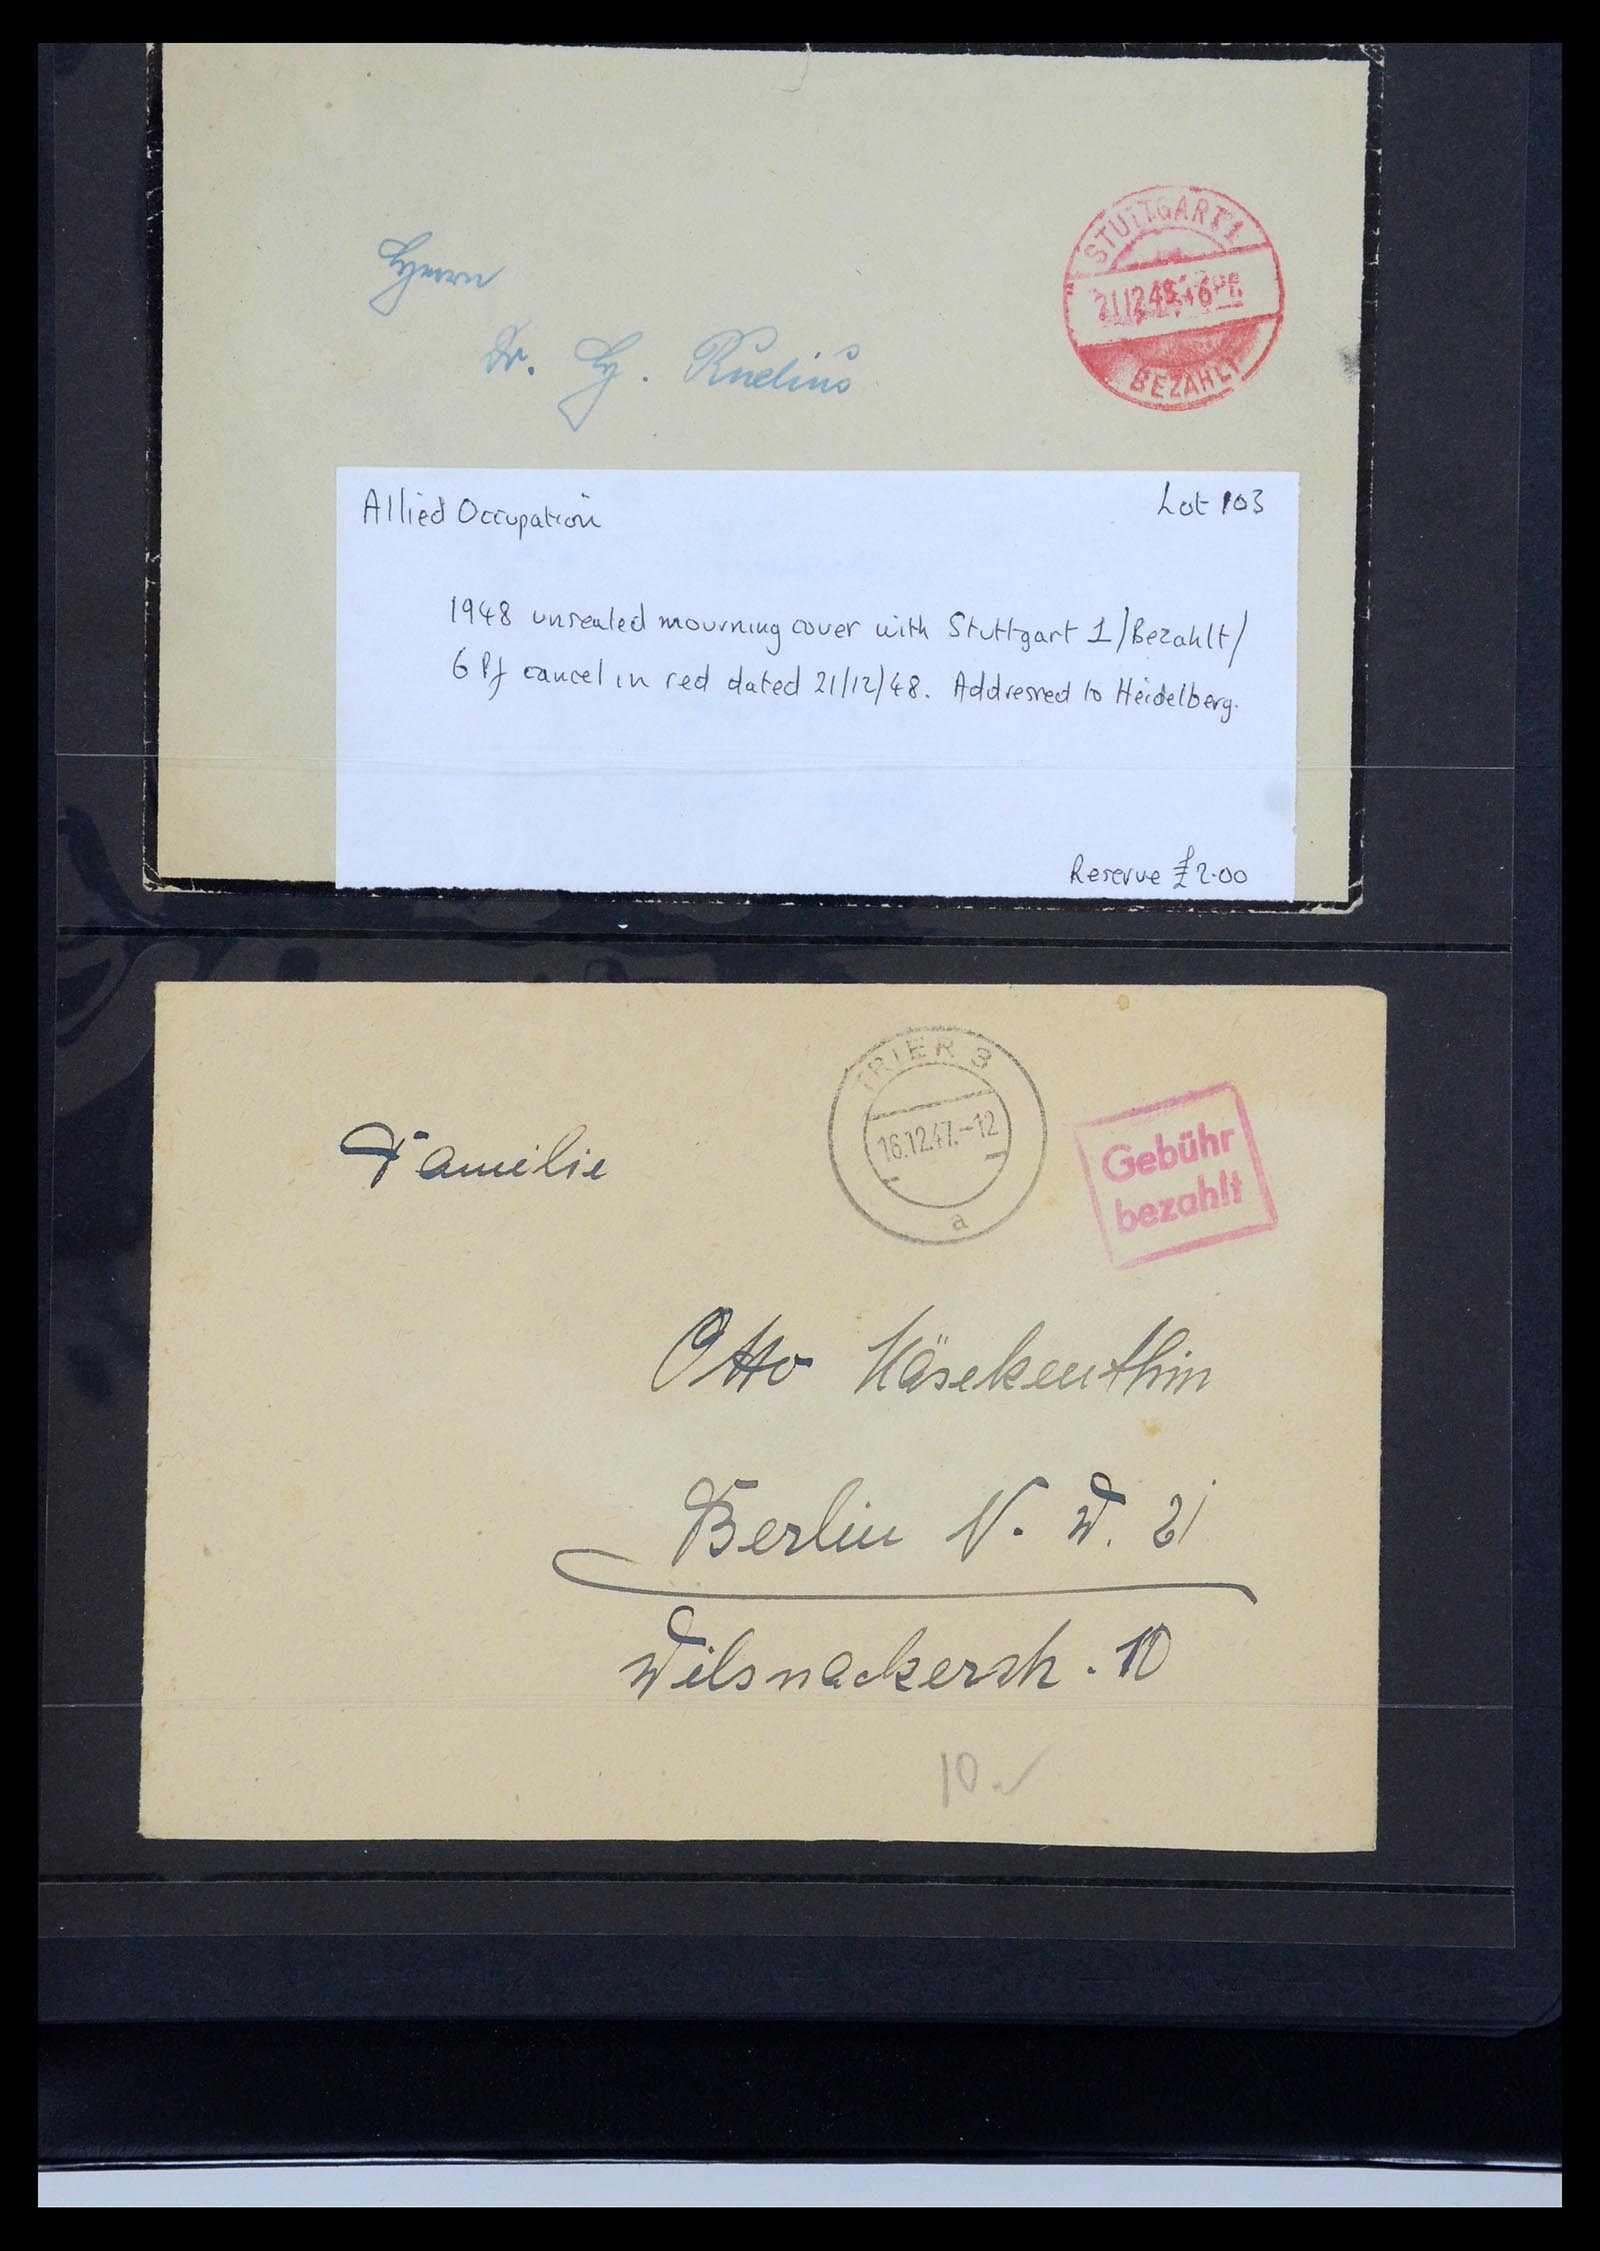 STUTTGART 1
21.12.48.-6 Pf.
BEZAHLT
Herrn
Dr. Hy. Rudius
Allied Occupation
Lot 103
1948 unsealed mourning cover with Stuttgart 1/Bezahlt/
6 Pf cancel in red dated 21/12/48. Addressed to Heidelberg.
Reserve £2.00
TRIER 3
16.12.47.-12
a
Gebühr
bezahlt
Familie
Otto Käsekenthin
Berlin N. W. 21
Wilsnackerstr. 10
10.-